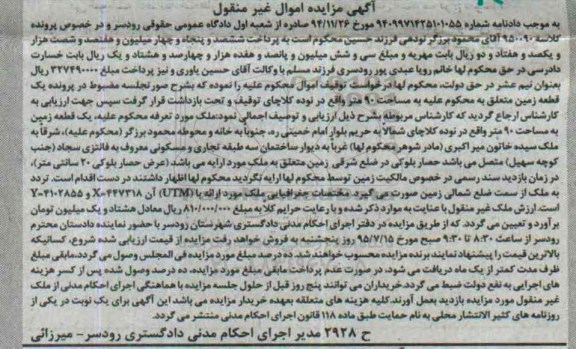 آگهی مزایده اموال غیر منقول
به موجب دادنامه شماره ۹۴۰۹۹۷۱۴۲۵۱۰۱۰۵۵ مورخ ۹۴/۱۱/۲۶ صادره از شعبه اول دادگاه عمومی حقوقی رودسر و در خصوص پرونده
کلاسه ۹۵۰۰۹۰ آقای محمود برزگر نودهی فرزند حسین محکوم است به پرداخت ششصد و پنجاه و چهار میلیون و هفتصد و شصت هزار
و یکصد و هفتاد و دو ریال بابت مهریه و مبلغ سی و شش میلیون و پانصد و هفده هزار و چهارصد و هشتاد و یک ریال بابت خسارت
دادرسی در حق محکوم لها خانم رویا عبدی پور رودسری فرزند مسلم با وکالت آقای حسین یاوری و نیز پرداخت مبلغ ۳۲۷۴۹۰۰۰۰ ریال
بعنوان نیم عشر در حق دولت، محکوم لها درخواست توقیف اموال محکوم علیه را نموده که بشرح صورتجلسه مضبوط در پرونده یک
قطعه زمین متعلق به محکوم علیه به مساحت ۹۰ متر واقع در نوده کلاچای توقیف و تحت بازداشت قرار گرفت سپس جهت ارزیابی به
کارشناس ارجاع گردید که کارشناس مربوطه بشرح ذیل ارزیابی و توصیف اجمالی نمود:ملک مورد تعرفه محکوم علیه، یک قطعه زمین
به مساحت ۹۰ متر واقع در نوده کلاچای شمالا به حریم بلوار امام خمینی ره، جنوباً به خانه و محوطه محمود برزگر (محکوم علیه)، شرقا به
ملک سیده خاتون میر اکبری (مادر شوهر محکوم لها) غرباً به دیوار ساختمان سه طبقه تجاری و مسکونی معروف به فانتزی سجاد (جنب
کوچه سهیل) متصل می باشد حصار بلوکی در ضلع شرقی زمین متعلق به ملک مورد ارایه می باشد (عرض حصار بلوکی ۲۰ سانتی متر)،
در زمان بازدید سند رسمی در خصوص مالکیت زمین توسط محکوم لها ارایه نگردید محکوم لها اظهار داشتند در دست اقدام است. تردد
به ملک از سمت ضلع شمالی زمین صورت می گیرد. مختصات جغرافیایی ملک مورد ارائه با (UTM) آن X-۴۴۷۳۱۸ و Y-۴۱۰۲۸۵۵
است. ارزش ملک غیر منقول با عنایت به موارد ذکر شده و با رعایت حرایم کلا به مبلغ ۸۱۰/۰۰۰/۰۰۰ ریال معادل هشتاد و یک میلیون تومان
برآورد و تعیین می گردد. که از طریق مزایده در دفتر اجرای احکام مدنی دادگستری شهرستان رودسر با حضور نماینده دادستان محترم
رودسر از ساعت ۸:۳۰ تا ۹:۳۰ صبح مورخ ۹۵/۷/۱۵ روز پنجشنبه به فروش خواهد رفت مزایده از قیمت ارزیابی شده شروع، کسانیکه
بالاترین قیمت را پیشنهاد نمایند برنده مزایده محسوب خواهند شد. ده درصد مبلغ مورد مزایده فی المجلس وصول می گردد،مابقی مبلغ
ظرف مدت کمتر از یک ماه دریافت می شود، در صورت عدم پرداخت مابقی مبلغ مورد مزایده، ده درصد وصول شده پس از کسر هزینه
های اجرایی به نفع دولت ضبط می گردد.خریداران می توانند پنج روز قبل از حلول جلسه مزایده با هماهنگی اجرای احکام مدنی از ملک
غیر منقول مورد مزایده بازدید بعمل آورند.کلیه هزینه های متعلقه بعهده خریدار مزایده می باشد این آگهی برای یک نوبت در یکی از
روزنامه های کثیر الانتشار محلی به نام حمایت طبق ماده ۱۱۸ قانون اجرای احکام مدنی منتشر می گردد.
ح ۲۹۲۸ مدیر اجرای احکام مدنی دادگستری رودسر- میرزائی